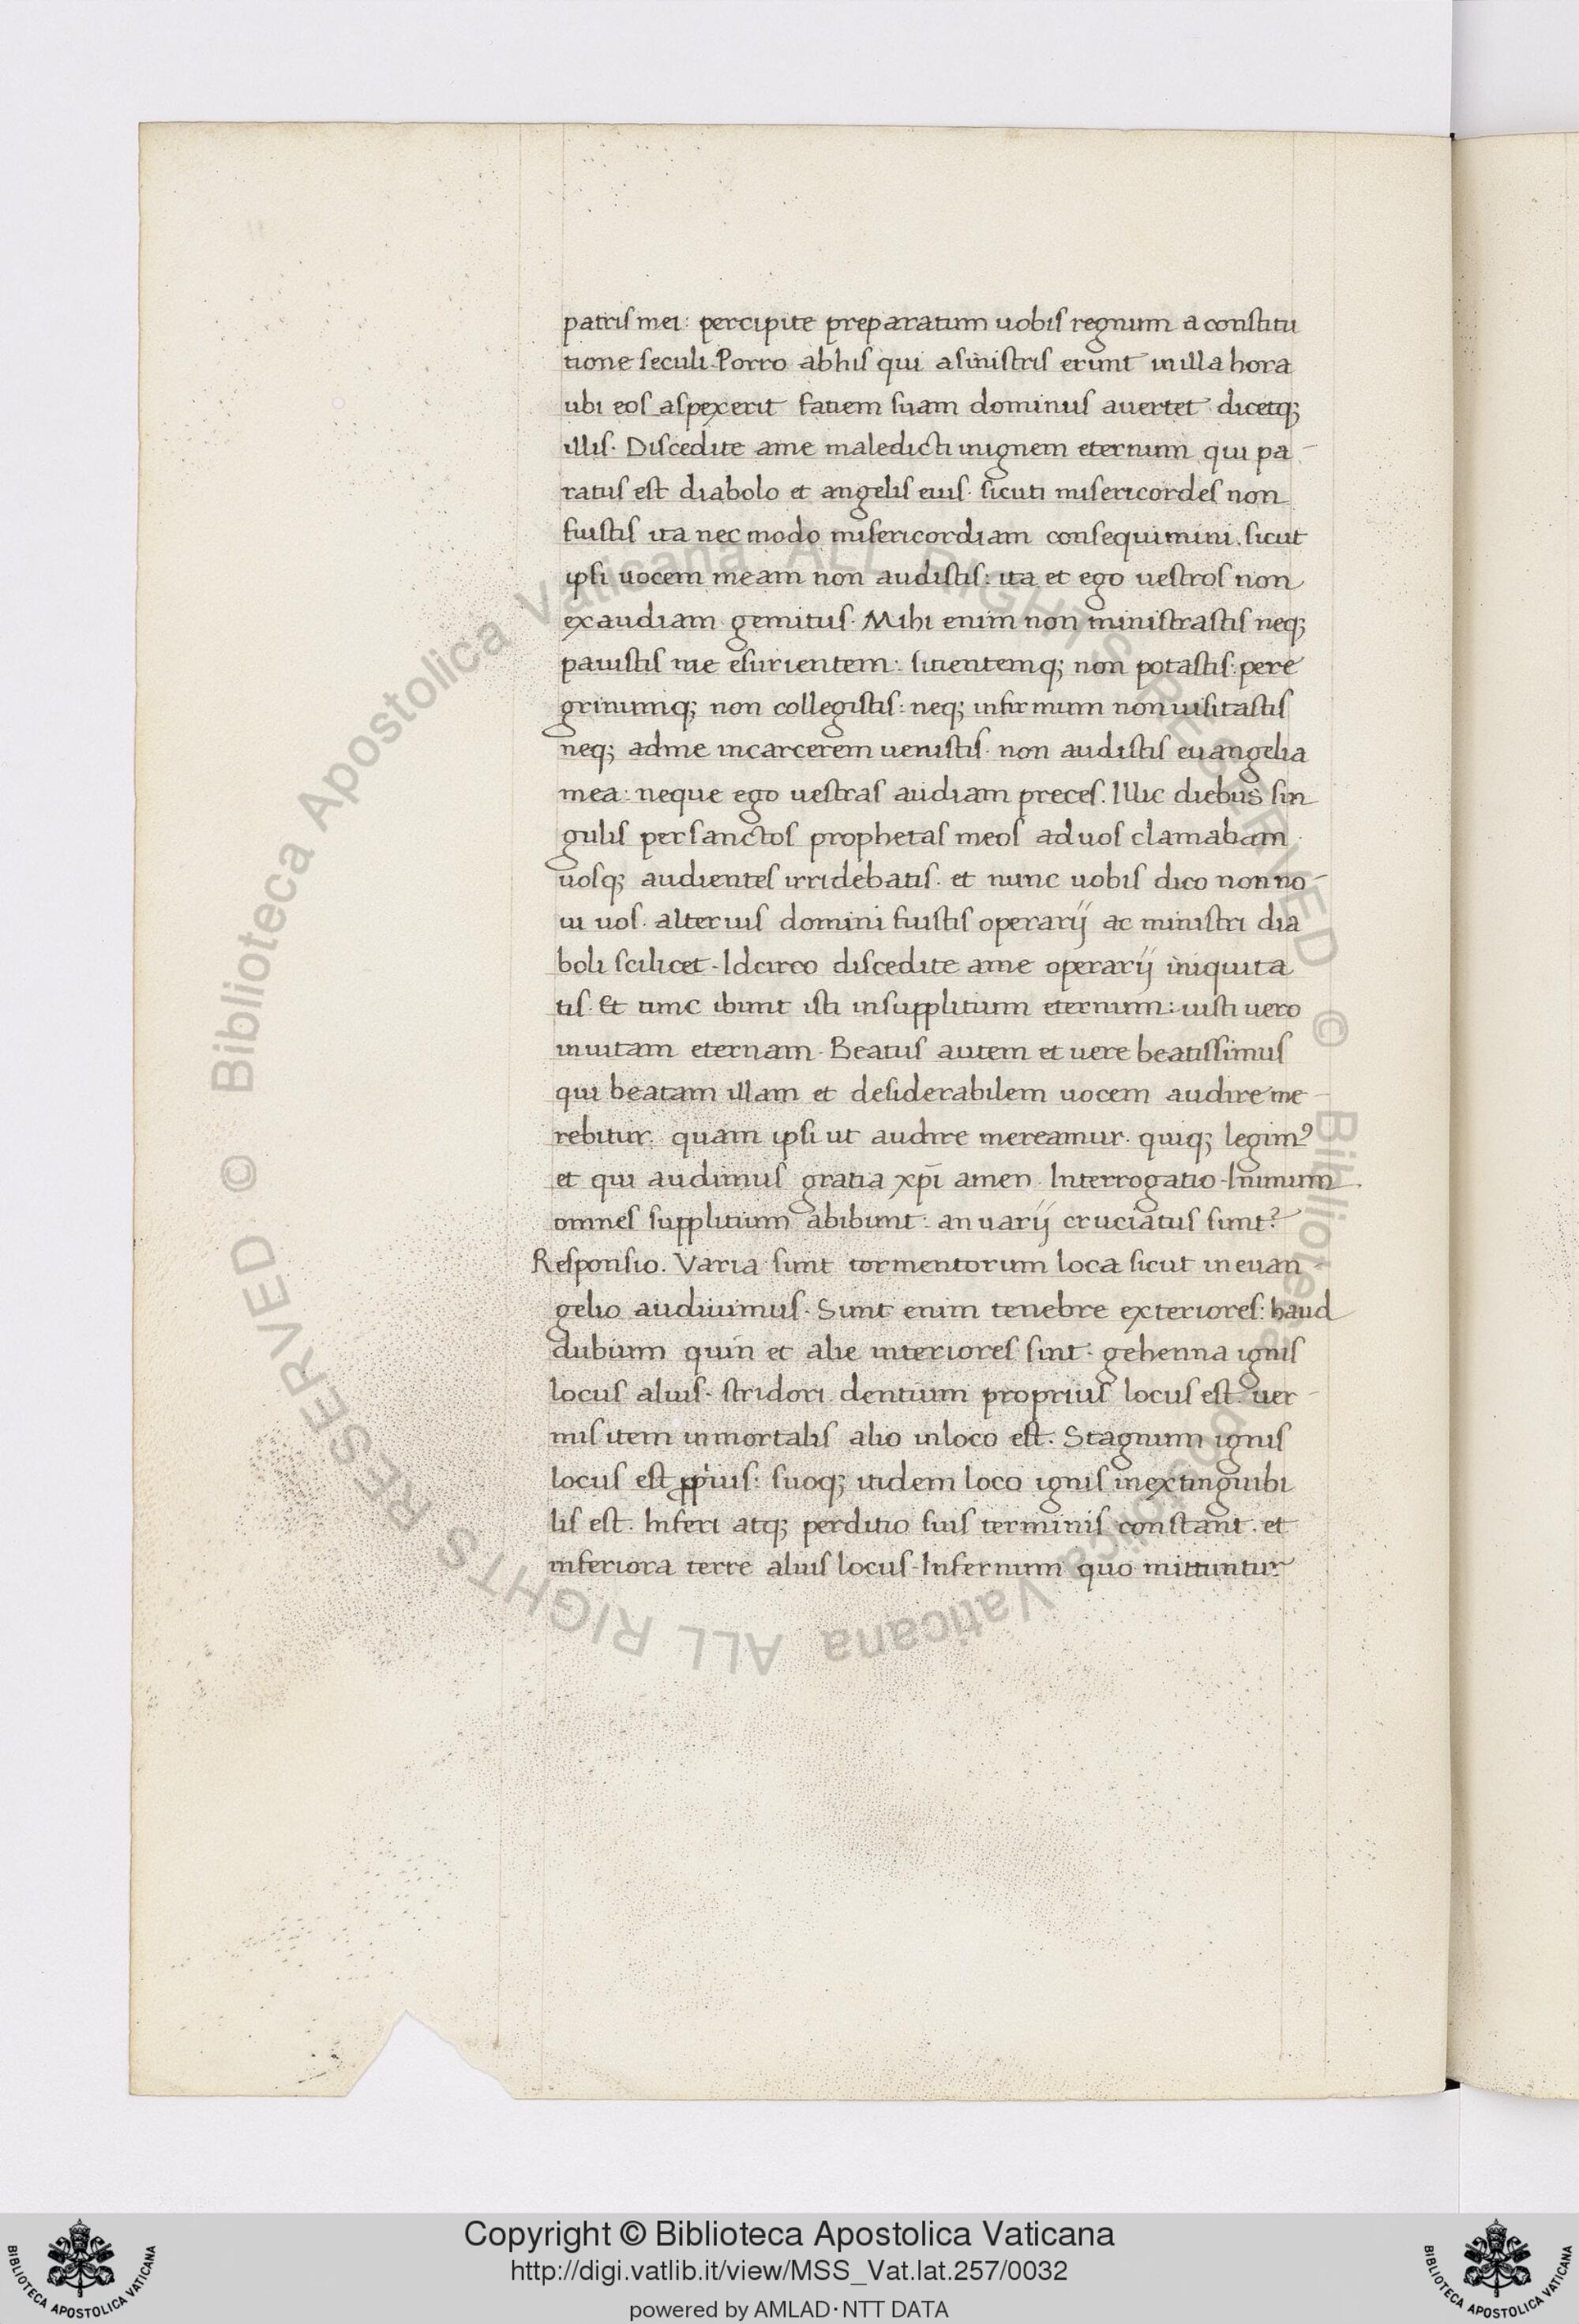 patris mei: percipite preparatum uobis regnum a constitu
tione seculi. Porro abhis qui asinistris erunt inilla hora
ubi eos aspexerit fatiem suam dominus auertet dicetq;
illis. Discedite ame maledicti inignem eternum qui pa-
ratus est diabolo et angelis eius. sicuti misericordes non
fuistis ita nec modo misericordiam consequimini. sicut
ipsi uocem meam non audistis: ita et ego uestros non
exaudiam gemitus. Mihi enim non ministrastis neq;
pauistis me esurientem: sitientemq; non potastis: pere
grinumq; non collegistis: neq; infirmum non uisitastis
neq; adme incarcerem uenistis. non audistis euangelia
mea: neque ego uestras audiam preces. Illic diebus sin
gulis per sanctos prophetas meos aduos clamabam
uosq; audientes irridebatis. et nunc uobis dico non no-
ui uos. alterius domini fuistis operarij ac ministri dia
boli scilicet. Idcirco discedite ame operarij iniquita
tis. Et tunc ibunt isti insupplitium eternum: iusti uero
inuitam eternam. Beatus autem et uere beatissimus
qui beatam illam et desiderabilem uocem audire me-
rebitur. quam ipsi ut audire mereamur. quiq; legimꝰ
et qui audimus gratia xp̄i amen. Interrogatio. Inunum
omnes supplitium abibunt: an uarij cruciatus sunt?
Responsio. Varia sunt tormentorum loca sicut in euan
gelio audiuimus. Sunt enim tenebre exteriores: haud
dubium quin et alie interiores sint. gehenna ignis
locus alius. stridori dentium proprius locus est. uer-
mis item inmortalis alio inloco est. Stagnum ignis
locus est ꝓprius: suoq; itidem loco ignis inextinguibi
lis est. Inferi atq; perditio suis terminis constant. et
inferiora terre alius locus. Infernum quo mittuntur
Copyright © Biblioteca Apostolica Vaticana
http://digi.vatlib.it/view/MSS_Vat.lat.257/0032
powered by AMLAD·NTT DATA
BIBLIOTECA APOSTOLICA VATICANA
BIBLIOTECA APOSTOLICA VATICANA
© Biblioteca Apostolica Vaticana ALL RIGHTS RESERVED © Biblioteca Apostolica Vaticana ALL RIGHTS RESERVED